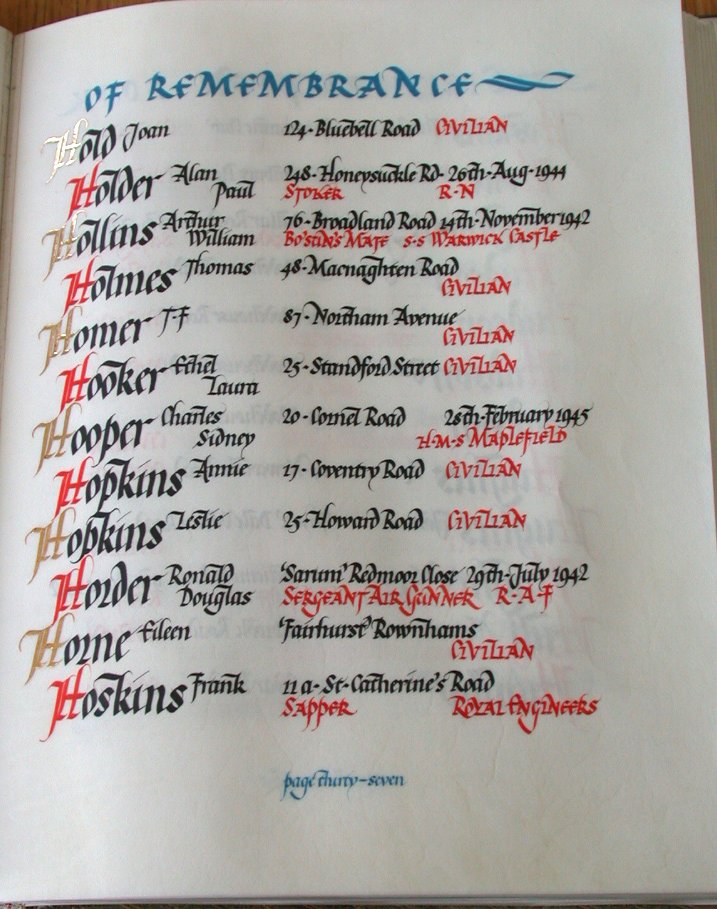 OF REMEMBRANCE
Hold Joan 124·Bluebell Road CIVILIAN
Holder Alan 248·Honeysuckle Rd· 26th·Aug·1944
Paul STOKER R·N
Hollins Arthur 76·Broadland Road 14th·November 1942
William BO'SUN'S MATE S·S WARWICK CASTLE
Holmes Thomas 48·Macnaghten Road
CIVILIAN
Homer T·F 87·Northam Avenue
CIVILIAN
Hooker Ethel 25·Standford Street CIVILIAN
Laura
Hooper Charles 20·Cornel Road 28th·February 1945
Sidney H·M·S MAPLEFIELD
Hopkins Annie 17·Coventry Road CIVILIAN
Hopkins Leslie 25·Howard Road CIVILIAN
Horder Ronald 'Sarum' Redmoor Close 29th·July 1942
Douglas SERGEANT AIR GUNNER R·A·F
Horne Eileen 'Fairhurst' Rownhams
CIVILIAN
Hoskins Frank 11a·St·Catherine's Road
SAPPER ROYAL ENGINEERS
page thirty-seven